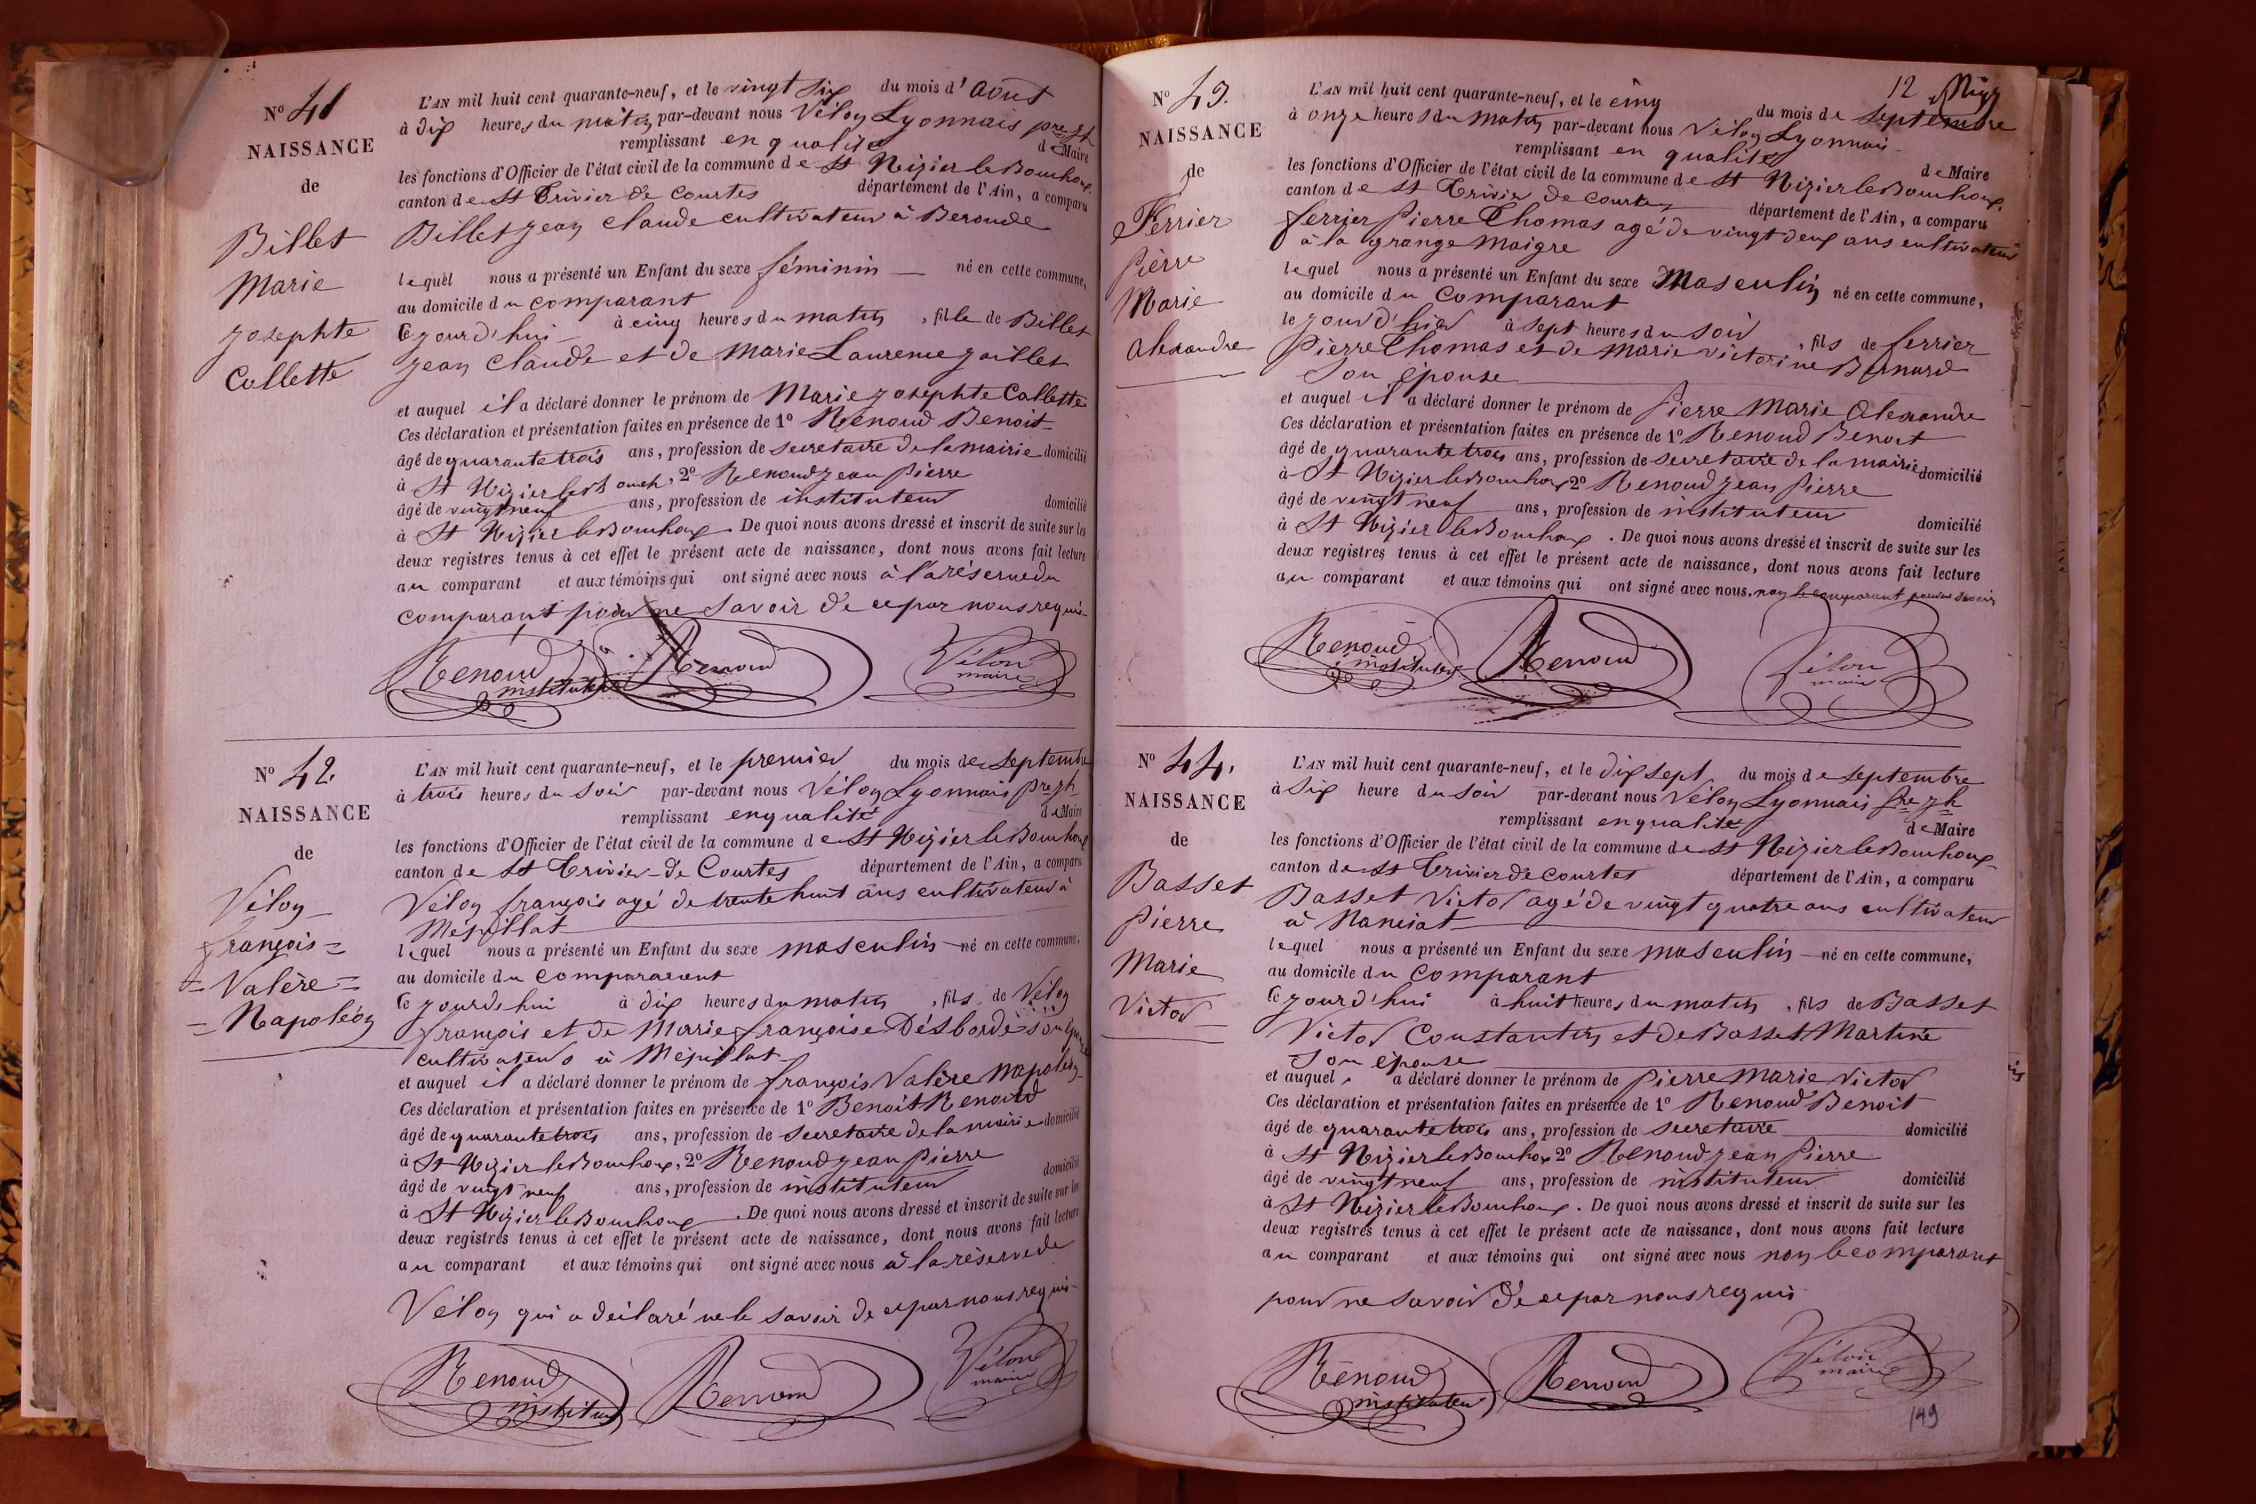 N° 41
NAISSANCE
de
Billet
Marie
Josephte
Collette
L'AN mil huit cent quarante-neuf, et le vingt six du mois d'Aout
à dix heures du matin par-devant nous Vélon Lyonnais
remplissant en qualité de Maire
les fonctions d'Officier de l'état civil de la commune de St Nizier le Bouhoux
canton de St Trivier de Courtes département de l'Ain, a comparu
Billet Jean Claude cultivateur à Beronde
lequel nous a présenté un Enfant du sexe féminin né en cette commune,
au domicile du comparant
Cejourd'hui à cinq heures du matin, fille de Billet
Jean Claude et de Marie Laurence Joillet
et auquel il a déclaré donner le prénom de Marie Josephte Collette
Ces déclaration et présentation faites en présence de 1° Renoud Benoit
âgé de quarante trois ans, profession de secretaire de la mairie domicilié
à St Nizier le Bouch, 2° Renoud Jean Pierre
âgé de vingt neuf ans, profession de instituteur domicilié
à St Nizier le Bouhoux. De quoi nous avons dressé et inscrit de suite sur les
deux registres tenus à cet effet le présent acte de naissance, dont nous avons fait lecture
au comparant et aux témoins qui ont signé avec nous à la réserve du
comparant pour ne savoir de ce par nous requis
Renoud instituteur Renoud Vélon maire
N° 42.
NAISSANCE
de
Vélon
françois =
= Valère =
= Napoléon
L'AN mil huit cent quarante-neuf, et le premier du mois de Septembre
à trois heures du soir par-devant nous Vélon Lyonnais
remplissant en qualité de Maire
les fonctions d'Officier de l'état civil de la commune de St Nizier le Bouhoux
canton de St Trivier de Courtes département de l'Ain, a comparu
Vélon françois agé de trente huit ans cultivateur à
Mépillat
lequel nous a présenté un Enfant du sexe masculin né en cette commune,
au domicile du comparant
Cejourdhui à dix heures du matin, fils de Vélon
françois et de Marie françoise Désbordes son épouse
cultivateurs à Mépillat
et auquel il a déclaré donner le prénom de françois Valère Napoléon
Ces déclaration et présentation faites en présence de 1° Benoit Renoud
âgé de quarante trois ans, profession de secretaire de la mairie domicilié
à St Nizier le Bouhoux, 2° Renoud Jean Pierre
âgé de vingt neuf ans, profession de instituteur domicilié
à St Nizier le Bouhoux. De quoi nous avons dressé et inscrit de suite sur les
deux registres tenus à cet effet le présent acte de naissance, dont nous avons fait lecture
au comparant et aux témoins qui ont signé avec nous à la réserve de
Vélon qui a déclaré ne le savoir de ce par nous requis
Renoud instituteur Renoud Vélon maire
12
N° 43.
NAISSANCE
de
Ferrier
Pierre
Marie
Alexandre
L'AN mil huit cent quarante-neuf, et le cinq du mois de Septembre
à onze heures du matin par-devant nous Vélon Lyonnais
remplissant en qualité de Maire
les fonctions d'Officier de l'état civil de la commune de St Nizier le Bouhoux
canton de St Trivier de Courtes département de l'Ain, a comparu
ferrier Pierre Thomas agé de vingt deux ans cultivateur
à la grange Maigre
lequel nous a présenté un Enfant du sexe Masculin né en cette commune,
au domicile du comparant
le jour d'hier à sept heures du soir, fils de ferrier
Pierre Thomas et de Marie Victorine Bernard
son épouse
et auquel il a déclaré donner le prénom de Pierre Marie Alexandre
Ces déclaration et présentation faites en présence de 1° Renoud Benoit
âgé de quarante trois ans, profession de secretaire de la mairie domicilié
à St Nizier le Bouhoux 2° Renoud Jean Pierre
âgé de vingt neuf ans, profession de instituteur domicilié
à St Nizier le Bouhoux. De quoi nous avons dressé et inscrit de suite sur les
deux registres tenus à cet effet le présent acte de naissance, dont nous avons fait lecture
au comparant et aux témoins qui ont signé avec nous. non le comparant
Renoud instituteur Renoud Vélon maire
N° 44.
NAISSANCE
de
Basset
Pierre
Marie
Victor
L'AN mil huit cent quarante-neuf, et le dix sept du mois de septembre
à six heure du soir par-devant nous Vélon Lyonnais
remplissant en qualité de Maire
les fonctions d'Officier de l'état civil de la commune de St Nizier le Bouhoux
canton de St Trivier de courtes département de l'Ain, a comparu
Basset Victor agé de vingt quatre ans cultivateur
à Nanciat
lequel nous a présenté un Enfant du sexe masculin né en cette commune,
au domicile du comparant
Cejourd'hui à huit heures du matin, fils de Basset
Victor Constantin et de Basset Martine
son épouse
et auquel a déclaré donner le prénom de Pierre Marie Victor
Ces déclaration et présentation faites en présence de 1° Renoud Benoit
âgé de quarante trois ans, profession de secretaire domicilié
à St Nizier le Bouhoux 2° Renoud Jean Pierre
âgé de vingt neuf ans, profession de instituteur domicilié
à St Nizier le Bouhoux. De quoi nous avons dressé et inscrit de suite sur les
deux registres tenus à cet effet le présent acte de naissance, dont nous avons fait lecture
au comparant et aux témoins qui ont signé avec nous non le comparant
pour ne savoir de ce par nous requis
Renoud instituteur Renoud Vélon maire
149